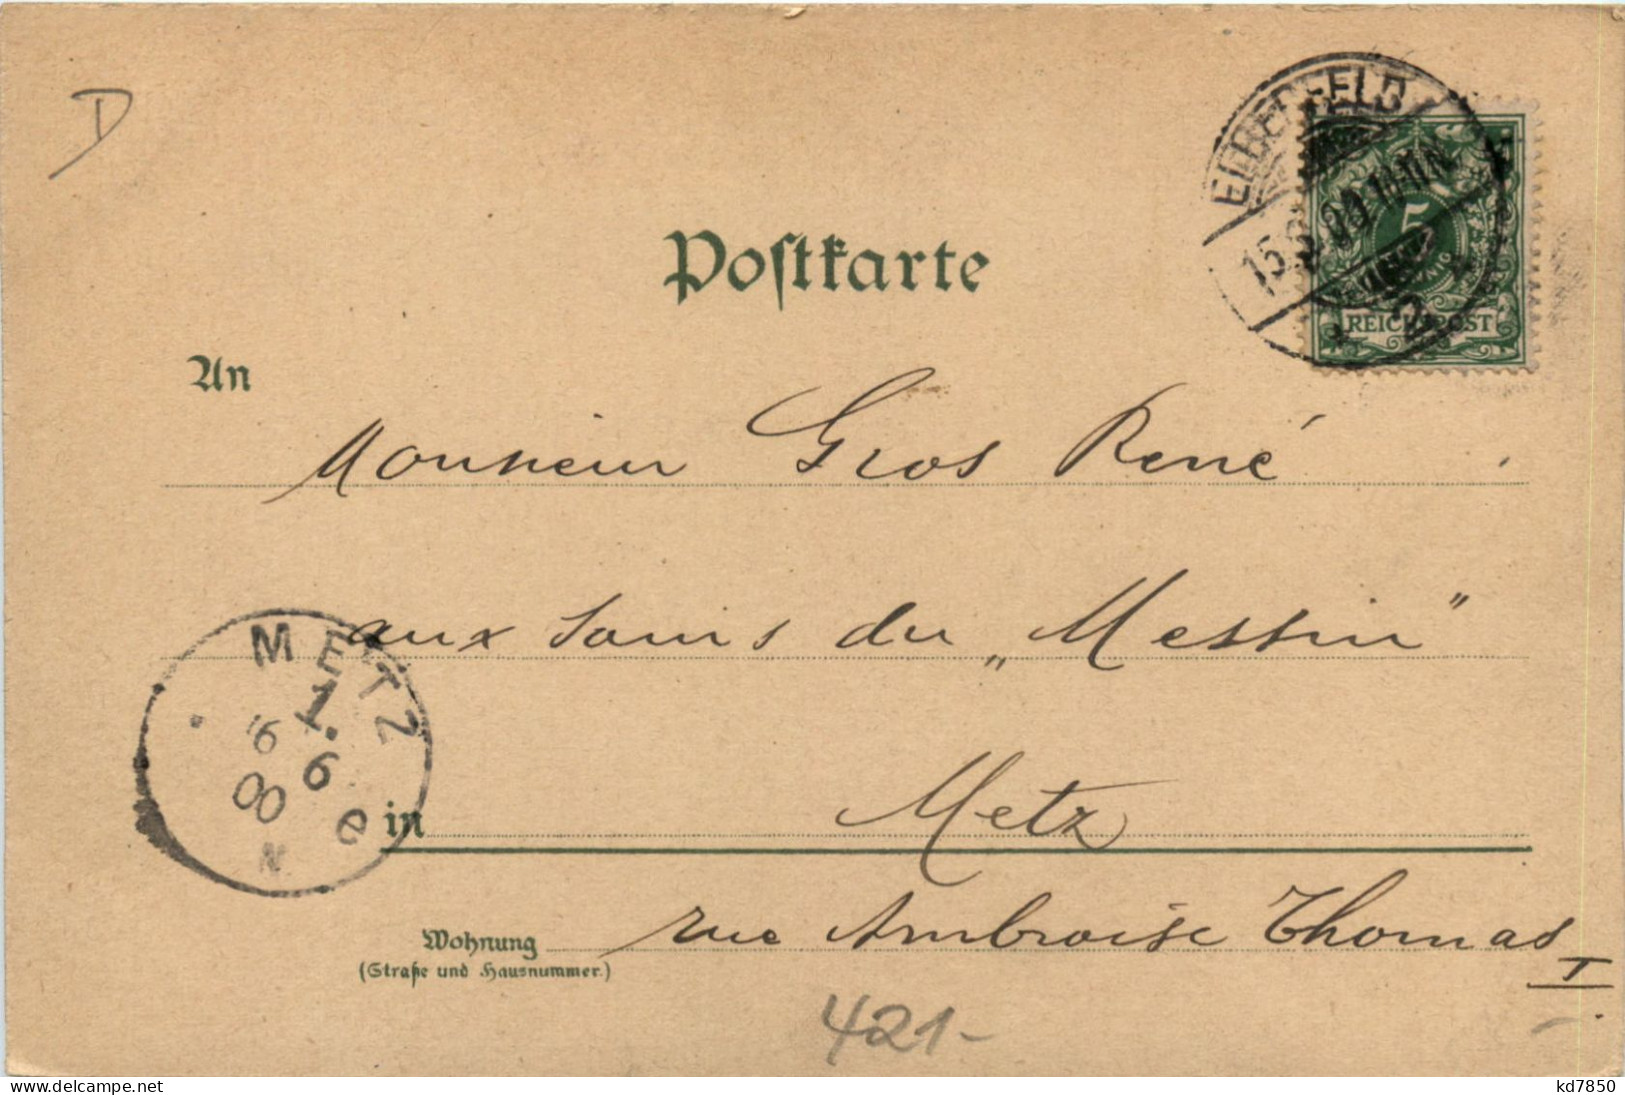 D
ELBERFELD
15. .00.10-11N
5
REICHSPOST
Postkarte
An
Monsieur Gros René
aux soins du „Messin"
METZ
1.
16 6
00 e
N
in Metz
Wohnung rue Ambroise Thomas
(Straße und Hausnummer.)
I
421-
www.delcampe.net
kd7850